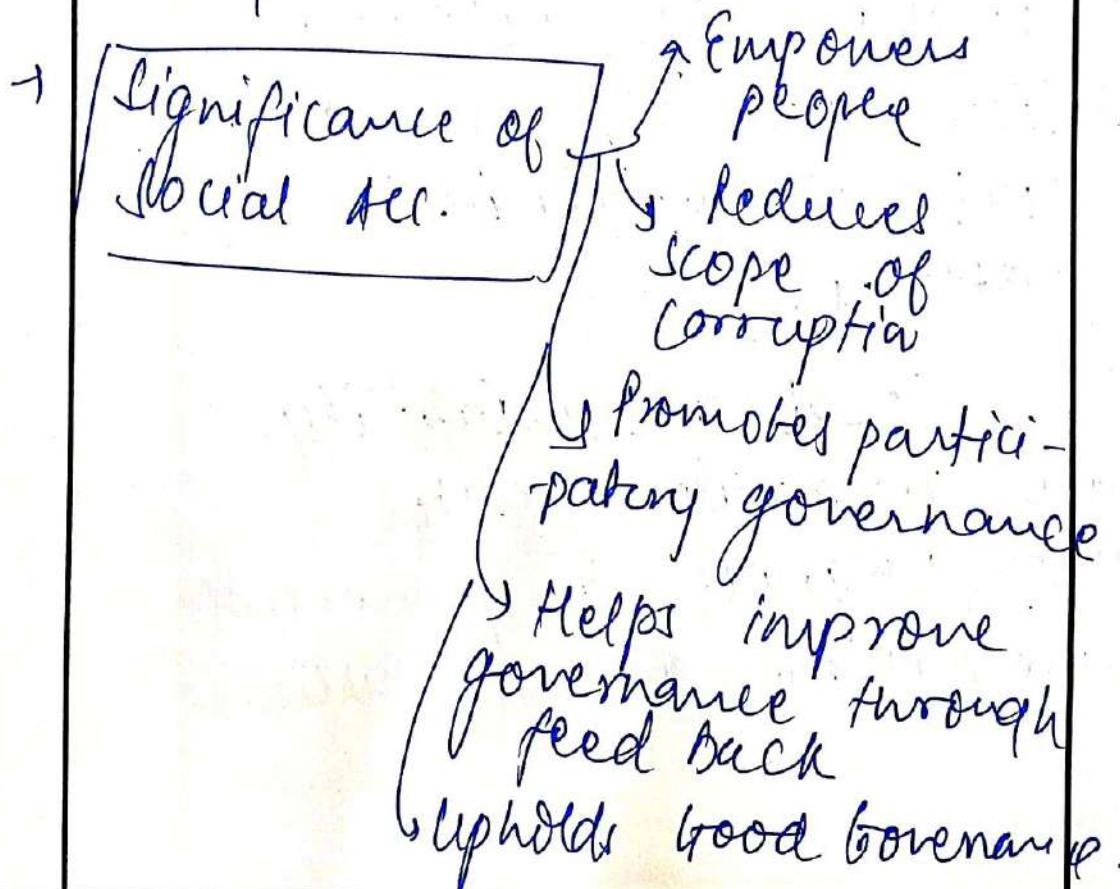 Significance of
Social Acc.
Empowers
people
Reduces
scope of
corruption
Promotes partici-
-patory governance
Helps improve
governance through
feed Back
Upholds Good Governance.